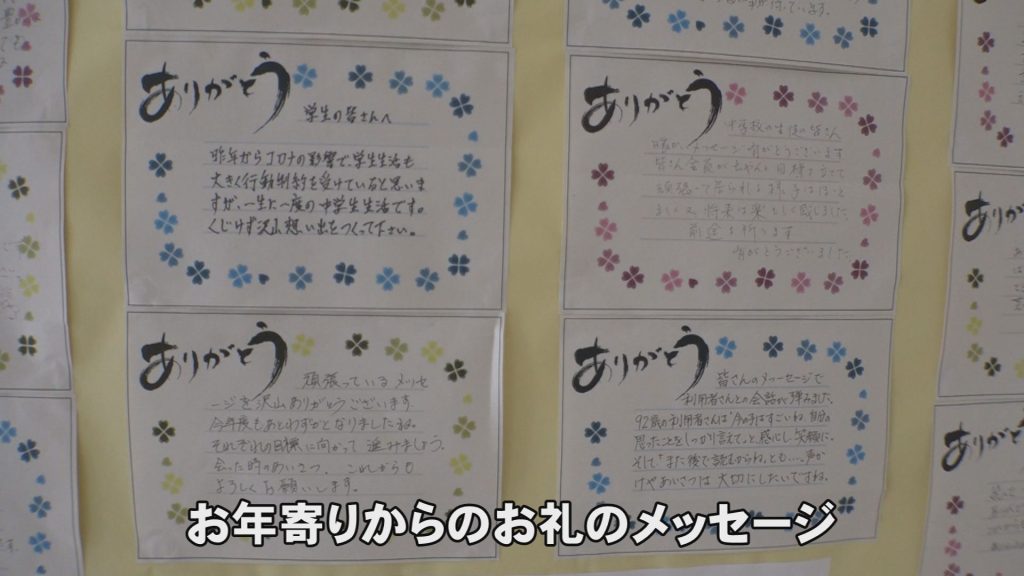 ありがとう
学生の皆さんへ
昨年からコロナの影響で学生生活も
大きく行動制約を受けていると思いま
すが、一生に一度の中学生生活です。
くじけず沢山想い出をつくって下さい。
ありがとう
中学校の生徒の皆さん
暖かいメッセージ有がとうございます
皆さん全員がちゃんと目標を立てて
頑張って居られる様子はほんと
将来は楽しく感じました
前途を祈ります
有がとうございました
ありがとう
頑張っているメッセ
ージを沢山ありがとうございます
今年度もあとわずかとなりましたね。
それぞれの目標に向かって進みましょう。
会った時のあいさつ、これからも
よろしくお願いします。
ありがとう
皆さんのメッセージで
利用者さんとの会話が弾みました。
92歳の利用者さんは「今の子はすごいね、自分の
思ったことをしっかり言えて」と感心し笑顔に。
そして「また後で読むからね」とも…。声か
けやあいさつは大切にしたいですね。
お年寄りからのお礼のメッセージ